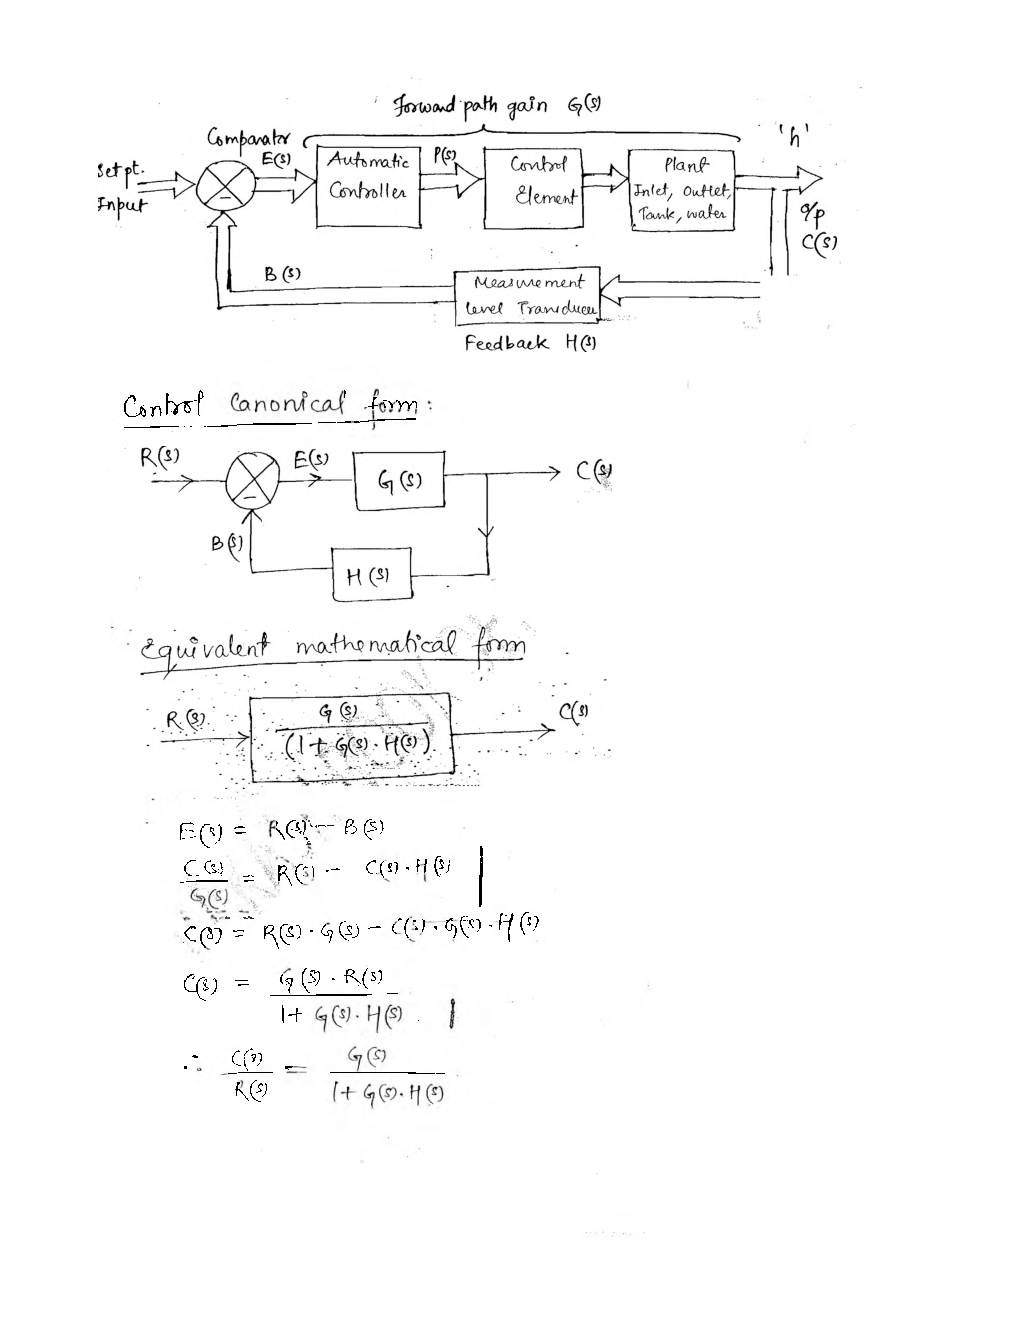 Forward path gain G(s)
'h'
Comparator
Set pt.
Input
E(s)
Automatic
Controller
P(s)
Control
Element
Plant
Inlet, Outlet,
Tank, water
o/p
C(s)
B(s)
Measurement
level Transducer
Feedback H(s)
Control Canonical form:
R(s)
E(s)
G(s)
C(s)
B(s)
H(s)
Equivalent mathematical form
R(s)
G(s)
(1 + G(s).H(s))
C(s)
E(s) = R(s) - B(s)
C(s)/G(s) = R(s) - C(s).H(s)
C(s) = R(s).G(s) - C(s).G(s).H(s)
C(s) = G(s).R(s)/1+ G(s).H(s)
∴ C(s)/R(s) = G(s)/1+ G(s).H(s)